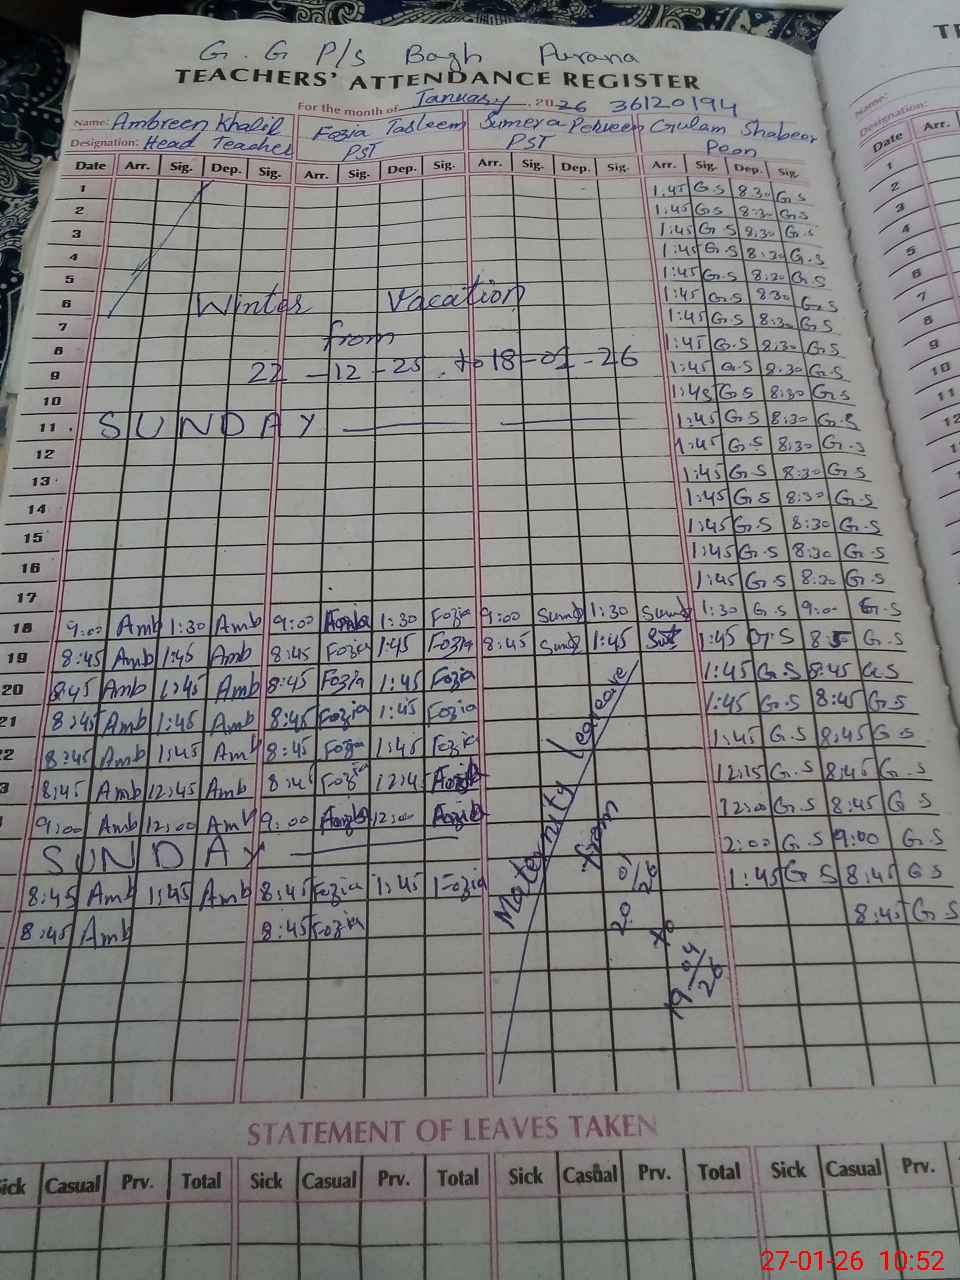 G. G P/s Bagh Purana
TEACHERS' ATTENDANCE REGISTER
For the month of January, 2026 36120194
Name: Ambreen Khalil Fozia Tasleem Sumera Perveen Gulam Shabeer
Designation: Head Teacher PST PST Peon
Date Arr. Sig. Dep. Sig. Arr. Sig. Dep. Sig. Arr. Sig. Dep. Sig. Arr. Sig. Dep. Sig.
1 1:45 G S 8:30 G S
2 1:45 G S 8:30 G S
3 1:45 G S 8:30 G.S
4 1:45 G.S 8:30 G.S
5 1:45 G.S 8:30 G.S
6 Winter Vacation 1:45 G S 8:30 G.S
7 from 1:45 G.S 8:30 G S
8 22-12-25 to 18-01-26 1:45 G.S 8:30 G S
9 1:45 G.S 8:30 G S
10 1:45 G S 8:30 G S
11 SUNDAY 1:45 G S 8:30 G.S
12 1:45 G.S 8:30 G.S
13 1:45 G S 8:30 G S
14 1:45 G S 8:30 G.S
15 1:45 G.S 8:30 G.S
16 1:45 G.S 8:30 G.S
17 1:45 G.S 8:30 G.S
18 9:00 Amb 1:30 Amb 9:00 1:30 Fozia 9:00 Sum 1:30 Sum 1:30 G.S 9:00 G.S
19 8:45 Amb 1:45 Amb 8:45 Fozia 1:45 Fozia 8:45 Sum 1:45 1:45 G.S G.S
20 8:45 Amb 1:45 Amb 8:45 Fozia 1:45 Fozia 1:45 G.S 8:45 G.S
21 8:45 Amb 1:45 Amb 8:45 Fozia 1:45 Fozia 1:45 G.S 8:45 G.S
22 8:45 Amb 1:45 Amb 8:45 Fozia 1:45 Fozia 1:45 G.S 8:45 G S
3 8:45 Amb 12:45 Amb 8:45 Fozia 12:45 12:15 G.S 8:45 G.S
9:00 Amb 12:00 Amb 9:00 12:00 12:00 G.S 8:45 G S
SUNDAY 2:00 G.S 9:00 G.S
8:45 Amb 1:45 Amb 8:45 Fozia 1:45 Fozia 1:45 G S 8:45 G S
8:45 Amb 8:45 Fozia 8:45 G S
Maternity leaveave
from
20 01/26
to
19 04/26
STATEMENT OF LEAVES TAKEN
Sick Casual Prv. Total Sick Casual Prv. Total Sick Casual Prv. Total Sick Casual Prv.
TE
Name:
Designation:
Date Arr.
1
2
3
4
5
6
7
8
9
10
11
12
27-01-26 10:52